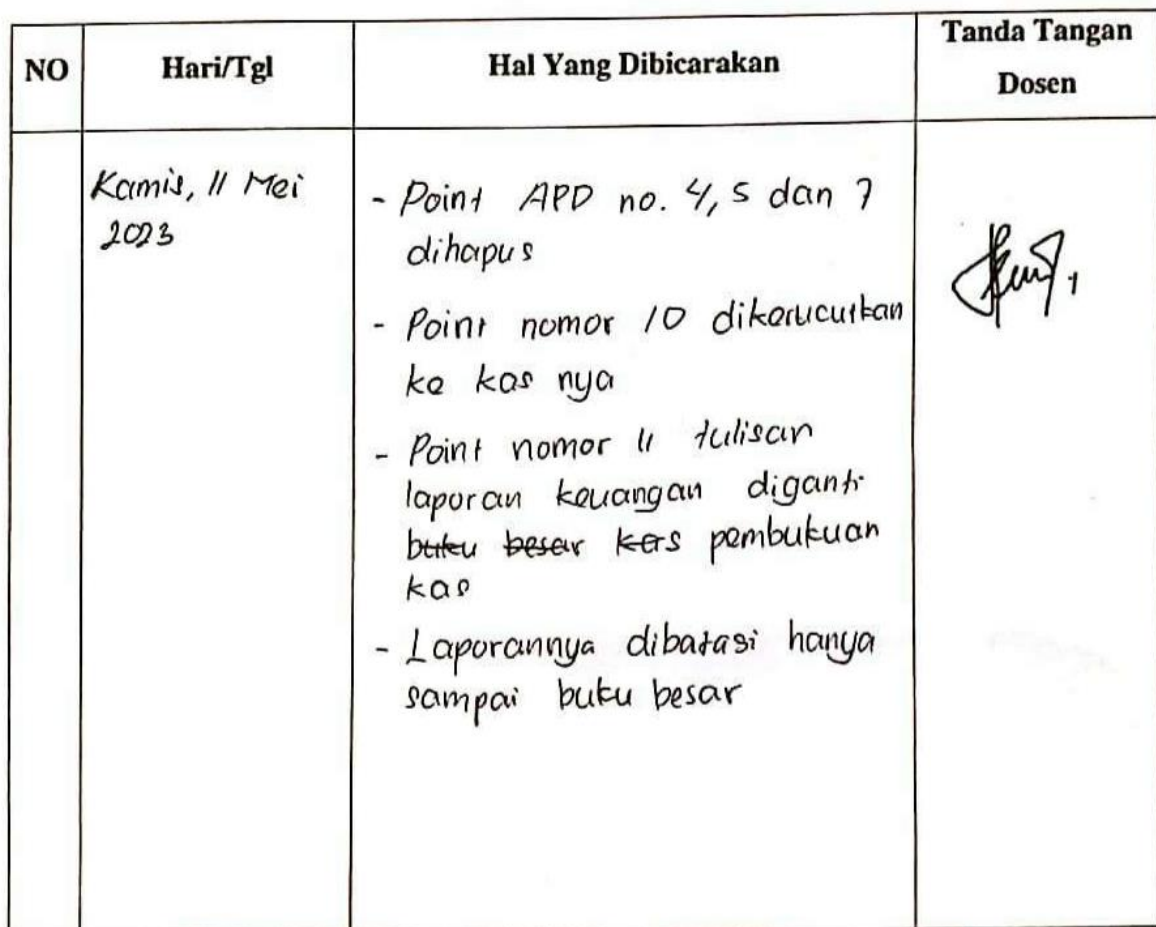 NO
Hari/Tgl
Hal Yang Dibicarakan
Tanda Tangan
Dosen
Kamis, 11 Mei
2023
- Point APD no. 4, 5 dan 7
dihapus
- Point nomor 10 dikerucutkan
ke kas nya
- Point nomor 11 tulisan
laporan keuangan diganti
buku besar kas pembukuan
kas
- Laporannya dibatasi hanya
sampai buku besar